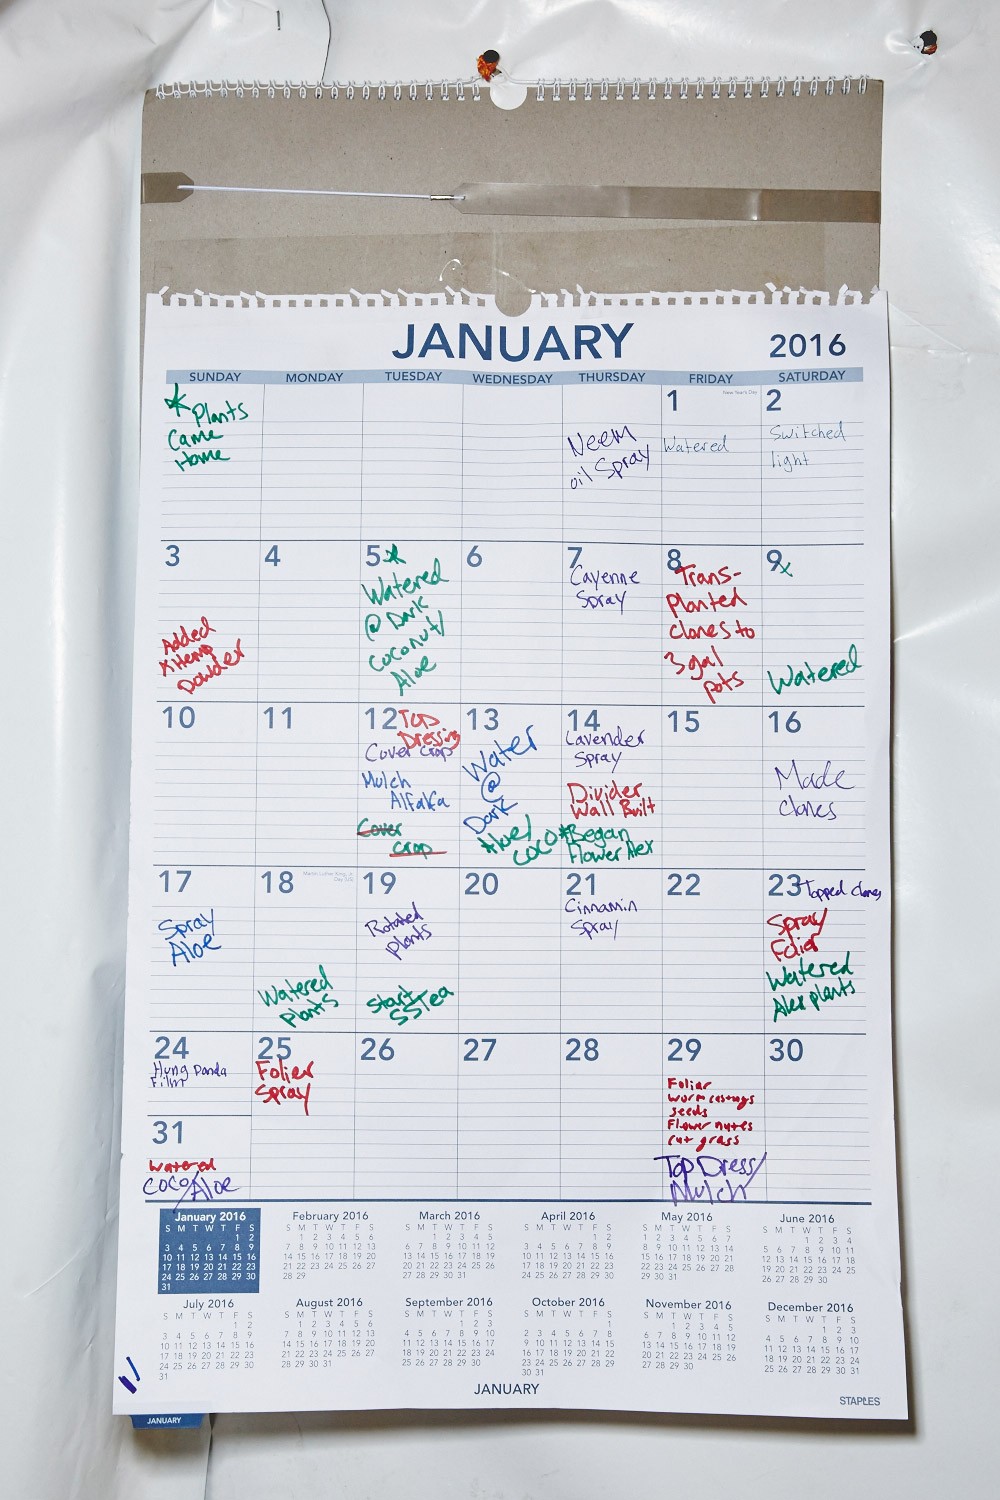 JANUARY
2016
SUNDAY MONDAY TUESDAY WEDNESDAY THURSDAY FRIDAY SATURDAY
Plants
Came
Home
Neem
oil Spray
1 New Year's Day
Watered
2
Switched
light
3
Added
Powder
4
5
Watered
@ Dark
Coconut/
Aloe
6
7
Cayenne
Spray
8
Trans-
Planted
clones to
3 gal
pots
9
Watered
10
11
12 Top
Dressing
Cover Crop
Mulch
Alfalfa
Cover
crop
13
Water
@
Dark
Aloe/
COCO
14
Lavender
Spray
Divider
Wall Built
*Began
Flower Alex
15
16
Made
clones
17
Spray
Aloe
18 Martin Luther King, Jr.
Watered
Plants
19
Rotated
plants
Start
SSTea
20
21
Cinnamin
Spray
22
23 Topped clones
Spray
Folier
Watered
Alex plants
24
Hung Panda
Film
25
Folier
Spray
26
27
28
29
Foliar
worm castings
seeds
Flower nutes
cut grass
Top Dress/
Mulch
30
31
Watered
COCO/Aloe
January 2016
S M T W T F S
1 2
3 4 5 6 7 8 9
10 11 12 13 14 15 16
17 18 19 20 21 22 23
24 25 26 27 28 29 30
31
February 2016
S M T W T F S
1 2 3 4 5 6
7 8 9 10 11 12 13
14 15 16 17 18 19 20
21 22 23 24 25 26 27
28 29
March 2016
S M T W T F S
1 2 3 4 5
6 7 8 9 10 11 12
13 14 15 16 17 18 19
20 21 22 23 24 25 26
27 28 29 30 31
April 2016
S M T W T F S
1 2
3 4 5 6 7 8 9
10 11 12 13 14 15 16
17 18 19 20 21 22 23
24 25 26 27 28 29 30
May 2016
S M T W T F S
1 2 3 4 5 6 7
8 9 10 11 12 13 14
15 16 17 18 19 20 21
22 23 24 25 26 27 28
29 30 31
June 2016
S M T W T F S
1 2 3 4
5 6 7 8 9 10 11
12 13 14 15 16 17 18
19 20 21 22 23 24 25
26 27 28 29 30
July 2016
S M T W T F S
1 2
3 4 5 6 7 8 9
10 11 12 13 14 15 16
17 18 19 20 21 22 23
24 25 26 27 28 29 30
31
August 2016
S M T W T F S
1 2 3 4 5 6
7 8 9 10 11 12 13
14 15 16 17 18 19 20
21 22 23 24 25 26 27
28 29 30 31
September 2016
S M T W T F S
1 2 3
4 5 6 7 8 9 10
11 12 13 14 15 16 17
18 19 20 21 22 23 24
25 26 27 28 29 30
October 2016
S M T W T F S
1
2 3 4 5 6 7 8
9 10 11 12 13 14 15
16 17 18 19 20 21 22
23 24 25 26 27 28 29
30 31
November 2016
S M T W T F S
1 2 3 4 5
6 7 8 9 10 11 12
13 14 15 16 17 18 19
20 21 22 23 24 25 26
27 28 29 30
December 2016
S M T W T F S
1 2 3
4 5 6 7 8 9 10
11 12 13 14 15 16 17
18 19 20 21 22 23 24
25 26 27 28 29 30 31
JANUARY
STAPLES
JANUARY